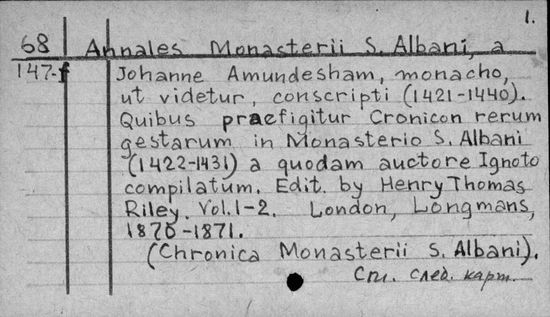 1.
68 Annales Monasterii S. Albani, a
147-f Johanne Amundesham, monacho,
ut videtur, conscripti (1421-1440).
Quibus praefigitur Cronicon rerum
gestarum in Monasterio S. Albani
(1422-1431) a quodam auctore Ignoto
compilatum. Edit. by Henry Thomas
Riley. Vol. 1-2. London, Longmans,
1870-1871.
(Chronica Monasterii S. Albani).
См. след. карт.